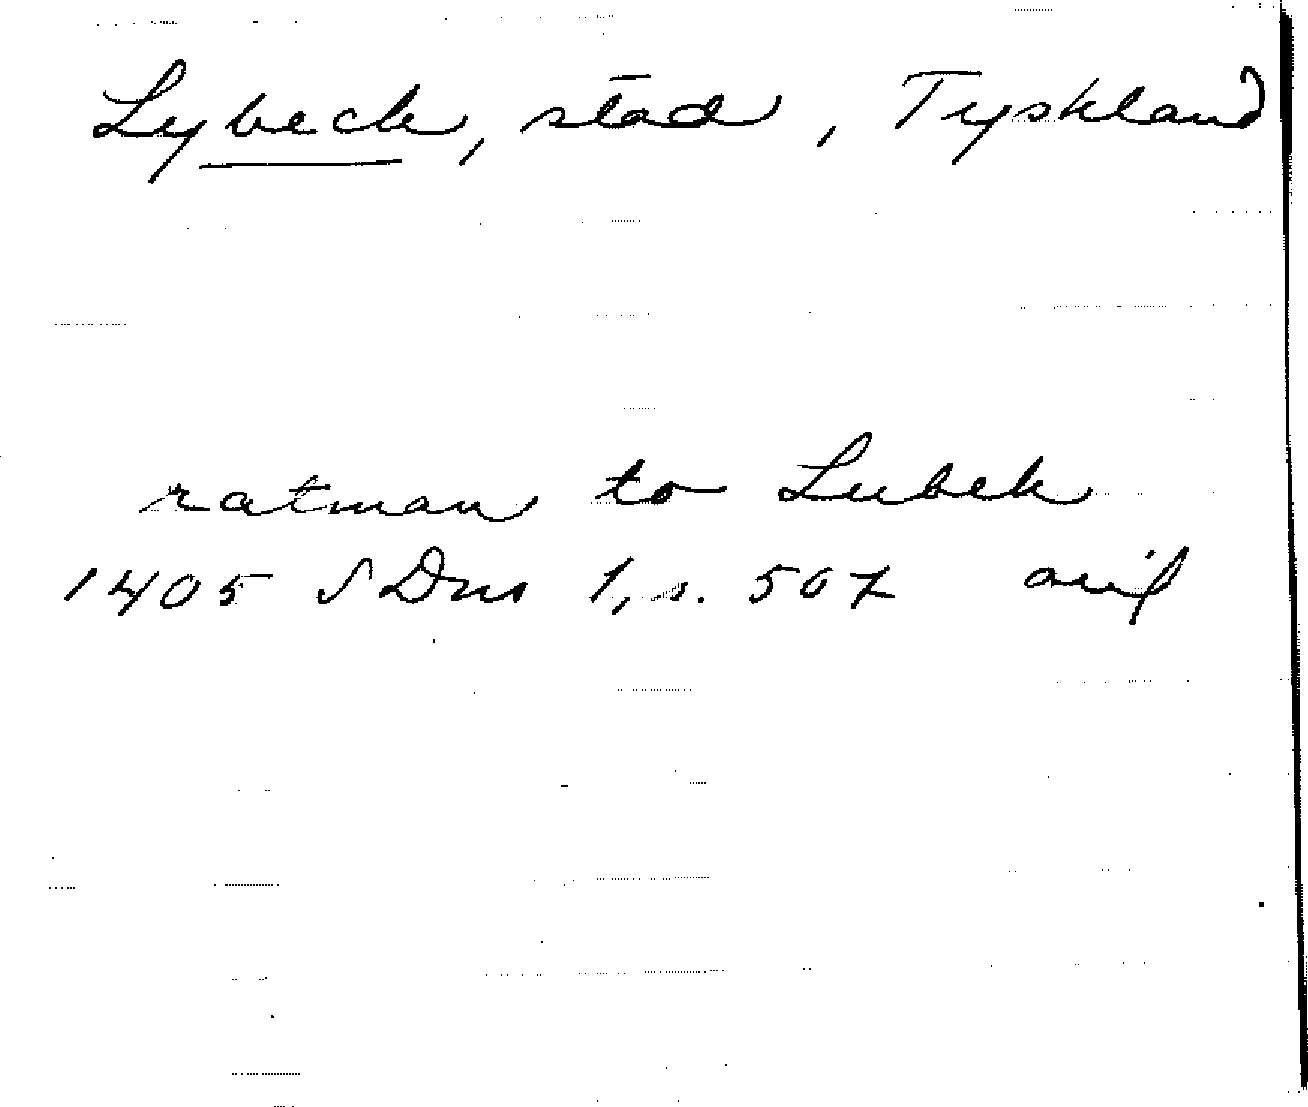 Lybeck, stad, Tyskland
ratman to Lubek
1405 SDns 1, s. 507 avil